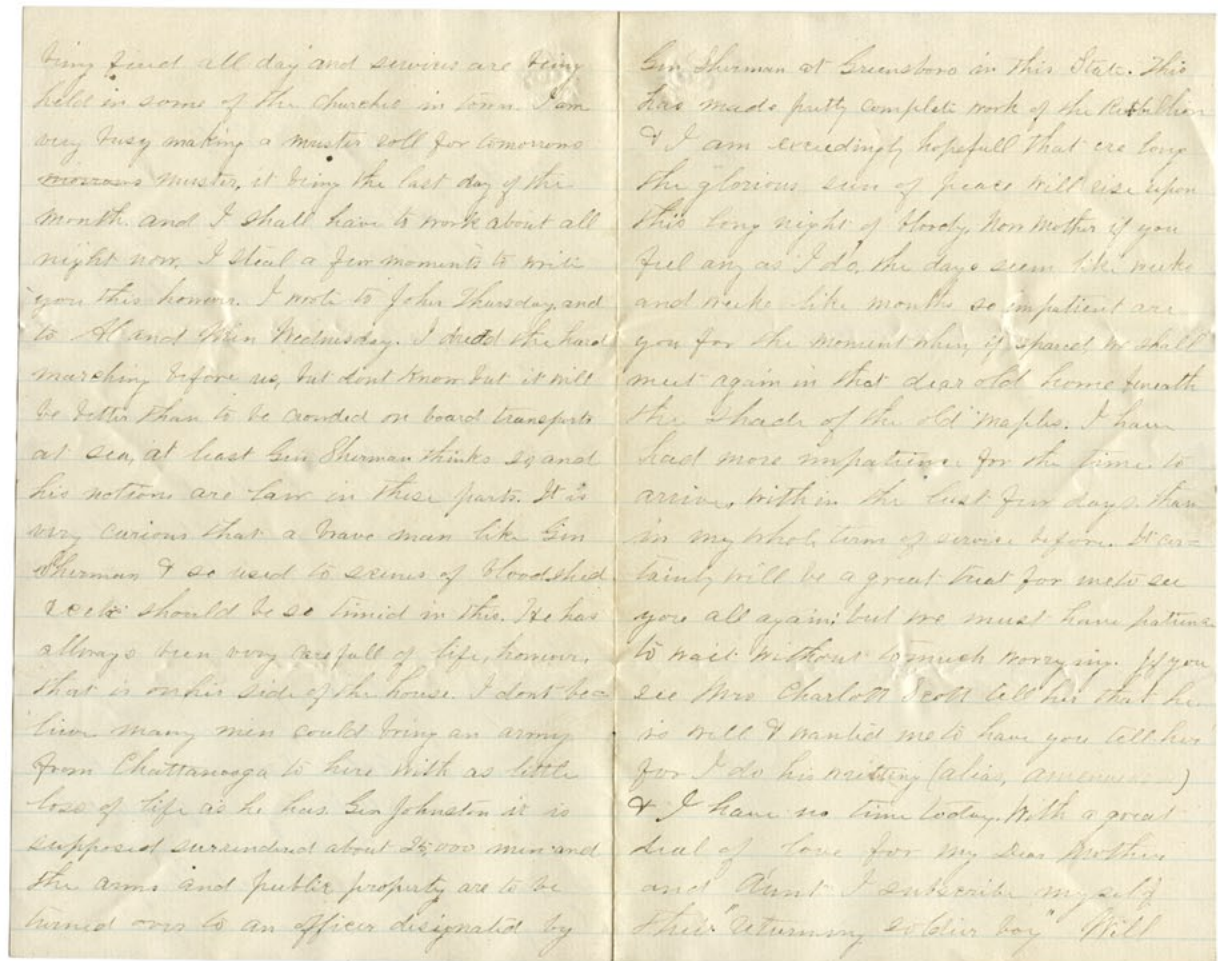 being fired all day and services are being
held in some of the churches in town. I am
very busy making a muster roll for tomorrows
morrows muster, it being the last day of the
month. and I shall have to work about all
night now. I steal a few moments to write
you this however. I wrote to John Thursday, and
to Al and Wednesday. I dread the hard
marching before us, but dont know but it will
be better than to be crowded on board transports
at sea, at least Gen Sherman thinks so, and
his notions are law in these parts. It is
very curious that a brave man like Gen
Sherman & so used to scenes of bloodshed
should be so timid in this. He has
allways been very carefull of life, however,
that is on his side of the house. I dont be=
lieve many men could bring an army
from Chattanooga to here with as little
loss of life as he has. Gen Johnston it is
supposed surrendered about 25,000 men and
the arms and public property are to be
turned over to an officer designated by
Gen Sherman at Greensboro in this State. This
has made pretty complete work of the Rebellion
& I am exceedingly hopefull that ere long
the glorious sun of peace will rise upon
this long night of bloody. Now Mother if you
feel any as I do, the days seem like weeks
and weeks like months so impatient are
you for the moment when, if spared, we shall
meet again in that dear old home beneath
the shade of the old maples. I have
had more impatience for the time to
arrive, within the last few days than
in my whole term of service before. It cer=
tainly will be a great treat for me to see
you all again; but we must have patience
to wait without to much worrying. If you
see Mrs Charlott Scott tell her that he
is well & wanted me to have you tell her
for I do his writting (alias, )
& I have no time today. With a great
deal of love for my Dear Mother
and Aunt I subscribe myself
their "returning soldier boy" Will